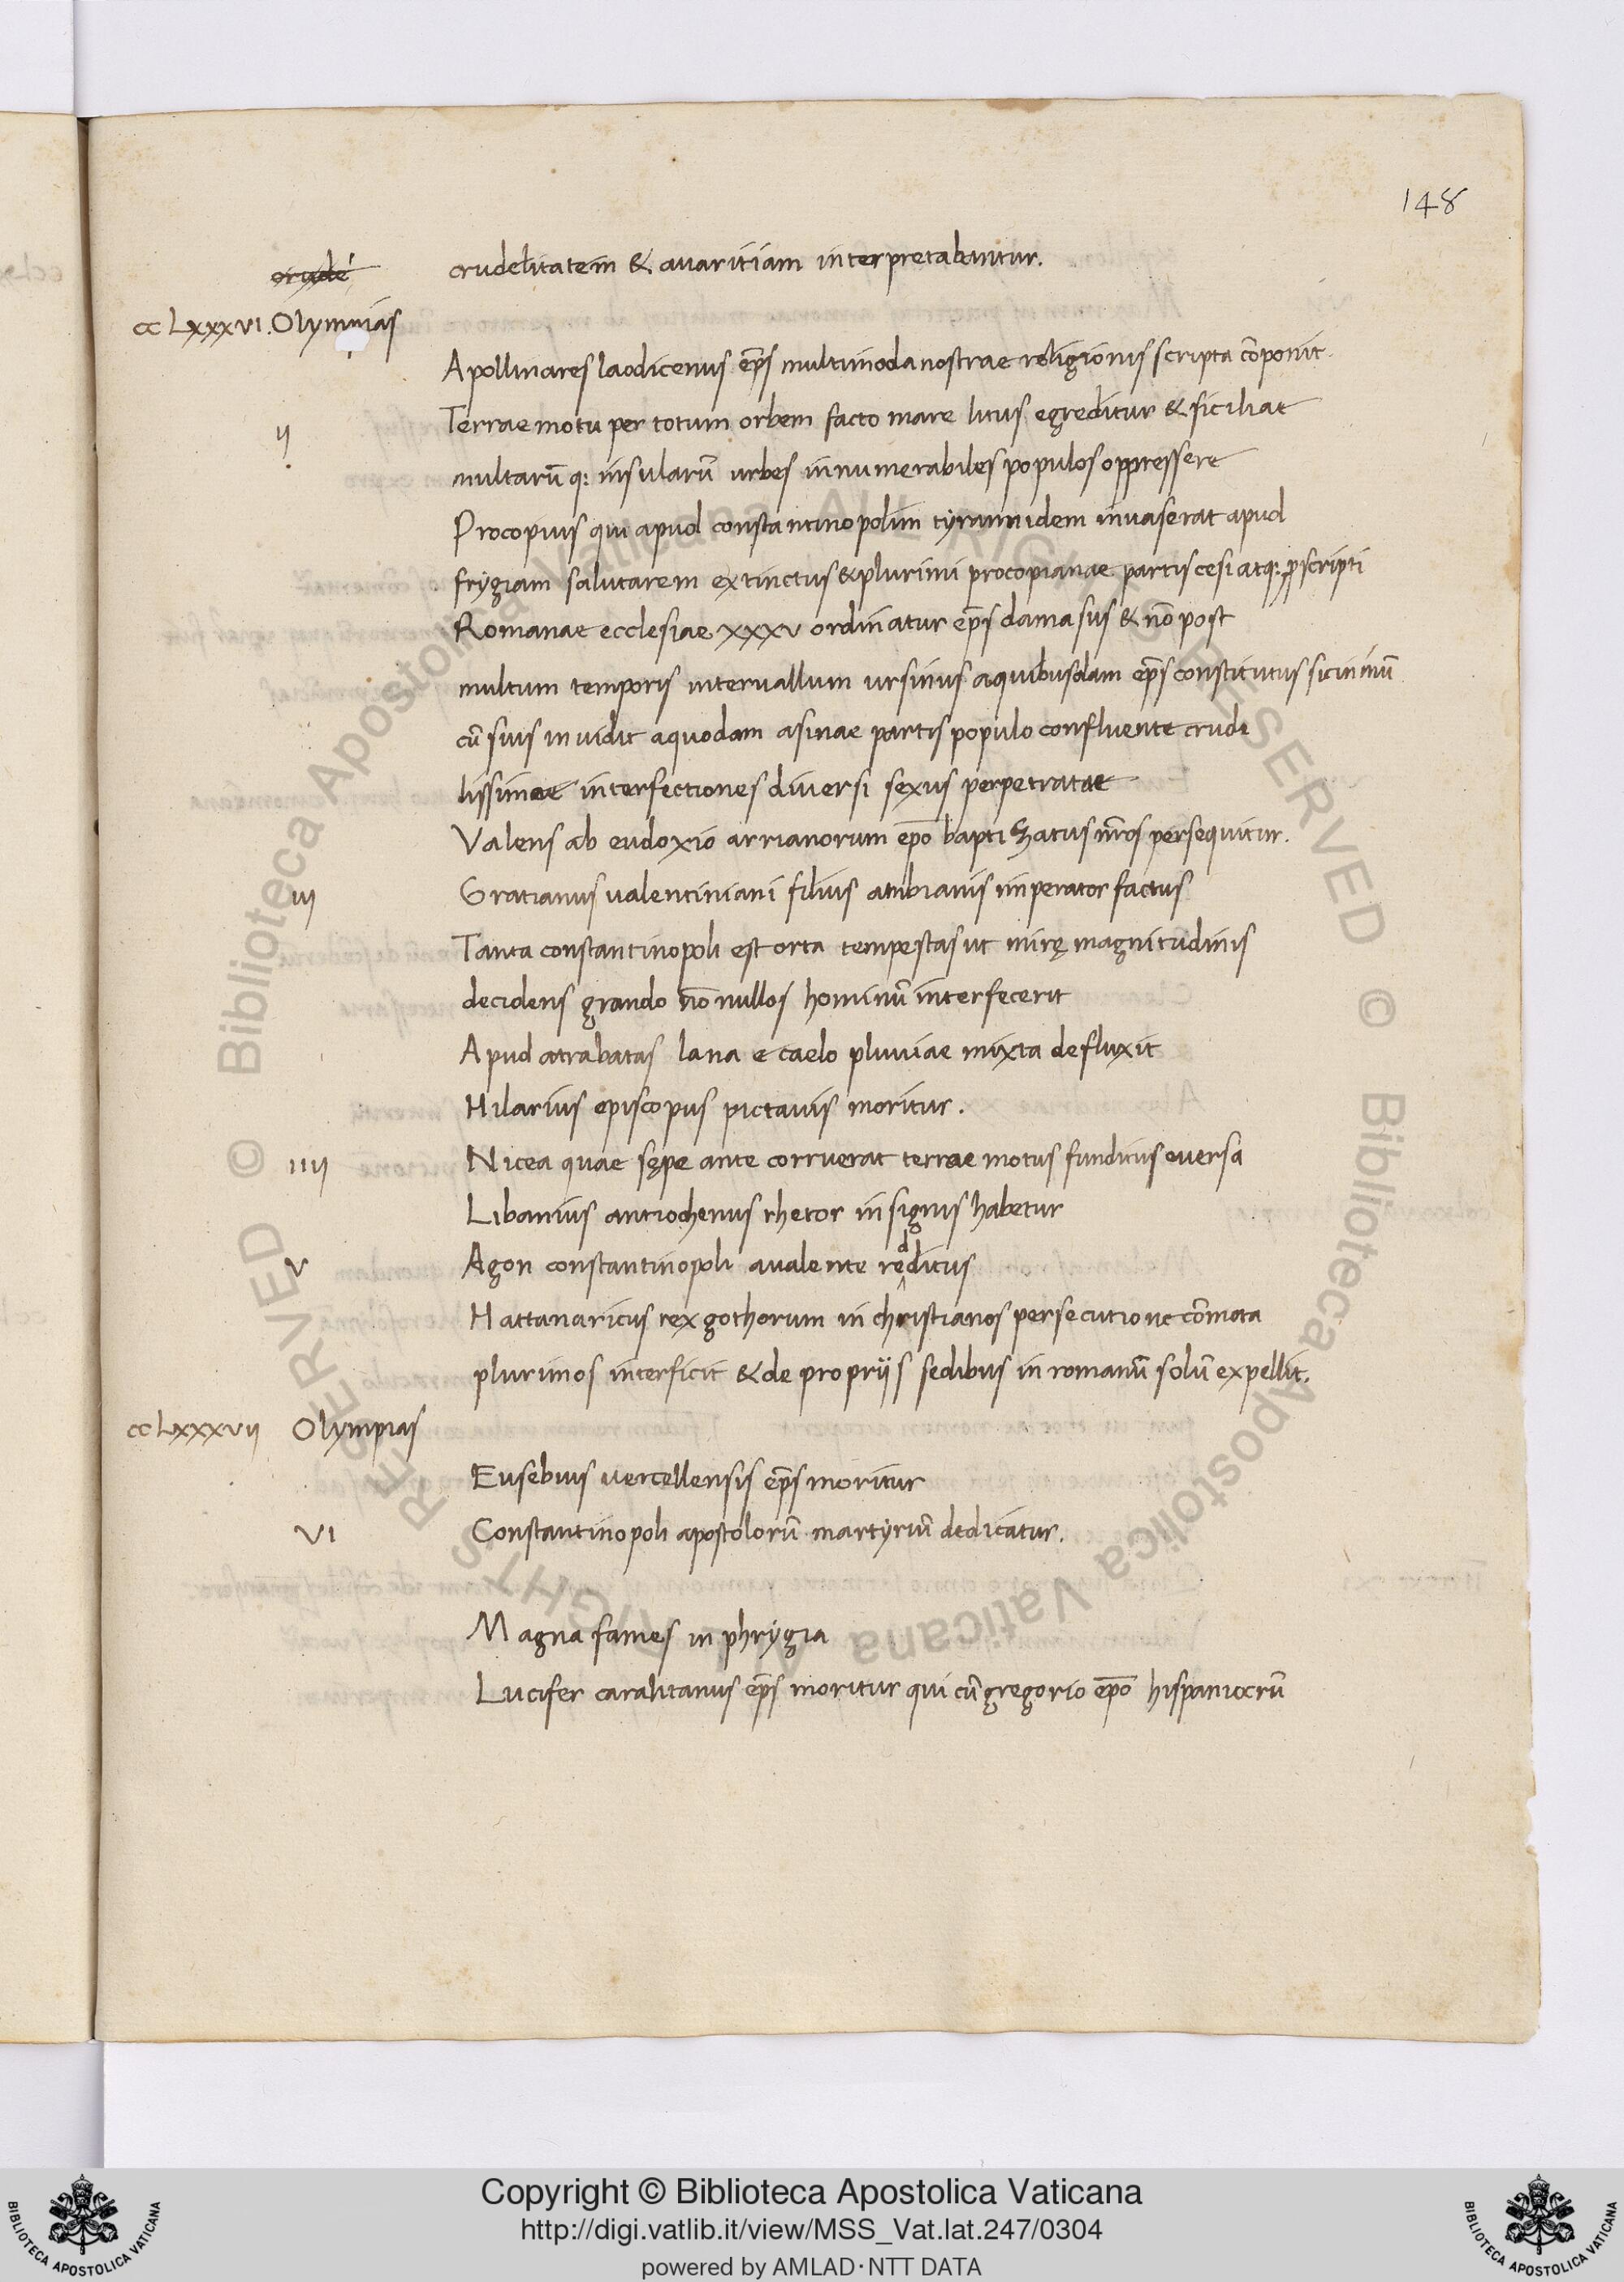 148
crude
crudelitatem & avaritiam interpretabuntur.
cc Lxxxvi. Olympias
Apollinares laodicenus ep̄s multimoda nostrae religionis scripta cōponit.
ii Terrae motu per totum orbem facto mare litus egreditur & siciliae
multarū q: insularū urbes innumerabiles populos oppressere
Procopius qui apud constantinopolim tyrannidem invaserat apud
frygiam salutarem extinctus & plurimi procopianae partis cesi atq: ꝓscripti
Romanae ecclesiae xxxv ordinatur ep̄s damasus & nō post
multum temporis intervallum ursinus aquibusdam ep̄s constitutus sicininū
cū suis invidit aquodam asinae partis populo confluente crude
lissimae interfectiones diversi sexus perpetratae
Valens ab eudoxio arrianorum ep̄o baptizatus nr̄os persequitur.
iii Gratianus valentiniani filius ambianis imperator factus
Tanta constantinopoli est orta tempestas ut mirę magnitudinis
decidens grando nō nullos hominū interfecerit
Apud atrabatas lana e caelo pluviae mixta defluxit
Hilarius episcopus pictavis moritur.
iiii Nicea quae sępe ante corruerat terrae motus funditus eversa
Libanius antiochenus rhetor insignis habetur
v Agon constantinopoli avalente redditus
Hattanaricus rex gothorum in christianos persecutione cōmota
plurimos interficit & de propriis sedibus in romanū solū expellit.
cc Lxxxvii Olympias
Eusebius vercellensis ep̄s moritur
vi Constantinopoli apostolorū martyriū dedicatur.
Magna fames in phrygia
Lucifer caralitanus ep̄s moritur qui cū gregorio ep̄o hispaniarū
© Biblioteca Apostolica Vaticana ALL RIGHTS RESERVED © Biblioteca Apostolica Vaticana ALL RIGHTS RESERVED
Copyright © Biblioteca Apostolica Vaticana
http://digi.vatlib.it/view/MSS_Vat.lat.247/0304
powered by AMLAD·NTT DATA
BIBLIOTECA APOSTOLICA VATICANA
BIBLIOTECA APOSTOLICA VATICANA